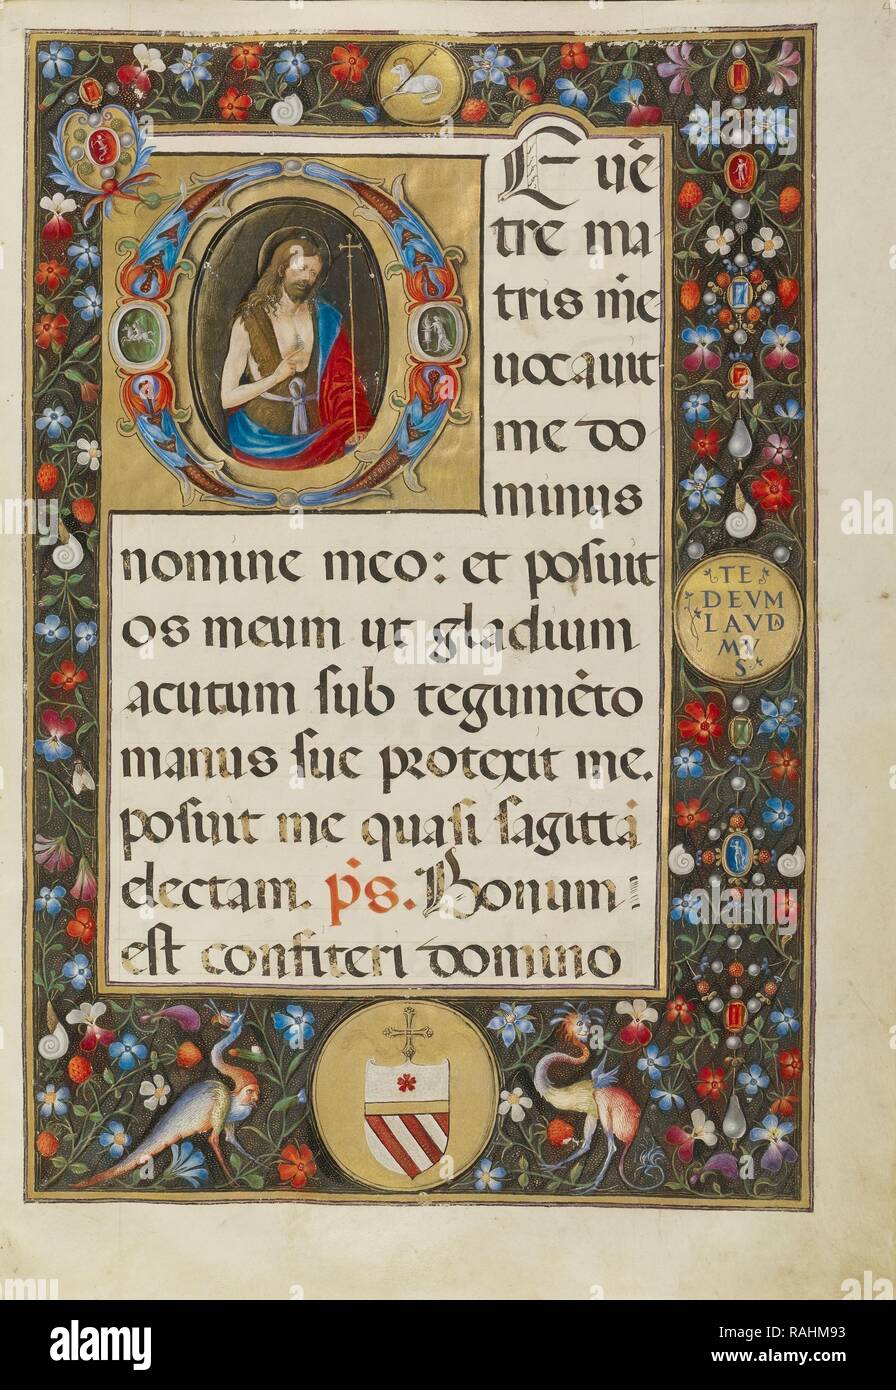 DE vē
tre ma
tris mē
vocavit
me do
minus
nomine meo: et posuit
os meum ut gladium
acutum sub tegumēto
manus sue protexit me.
posuit me quasi sagittā
electam. p̄s. Bonum
est confiteri domino
TE
DEVM
LAVD
MV
S
alamy
Image ID: RAHM93
www.alamy.com